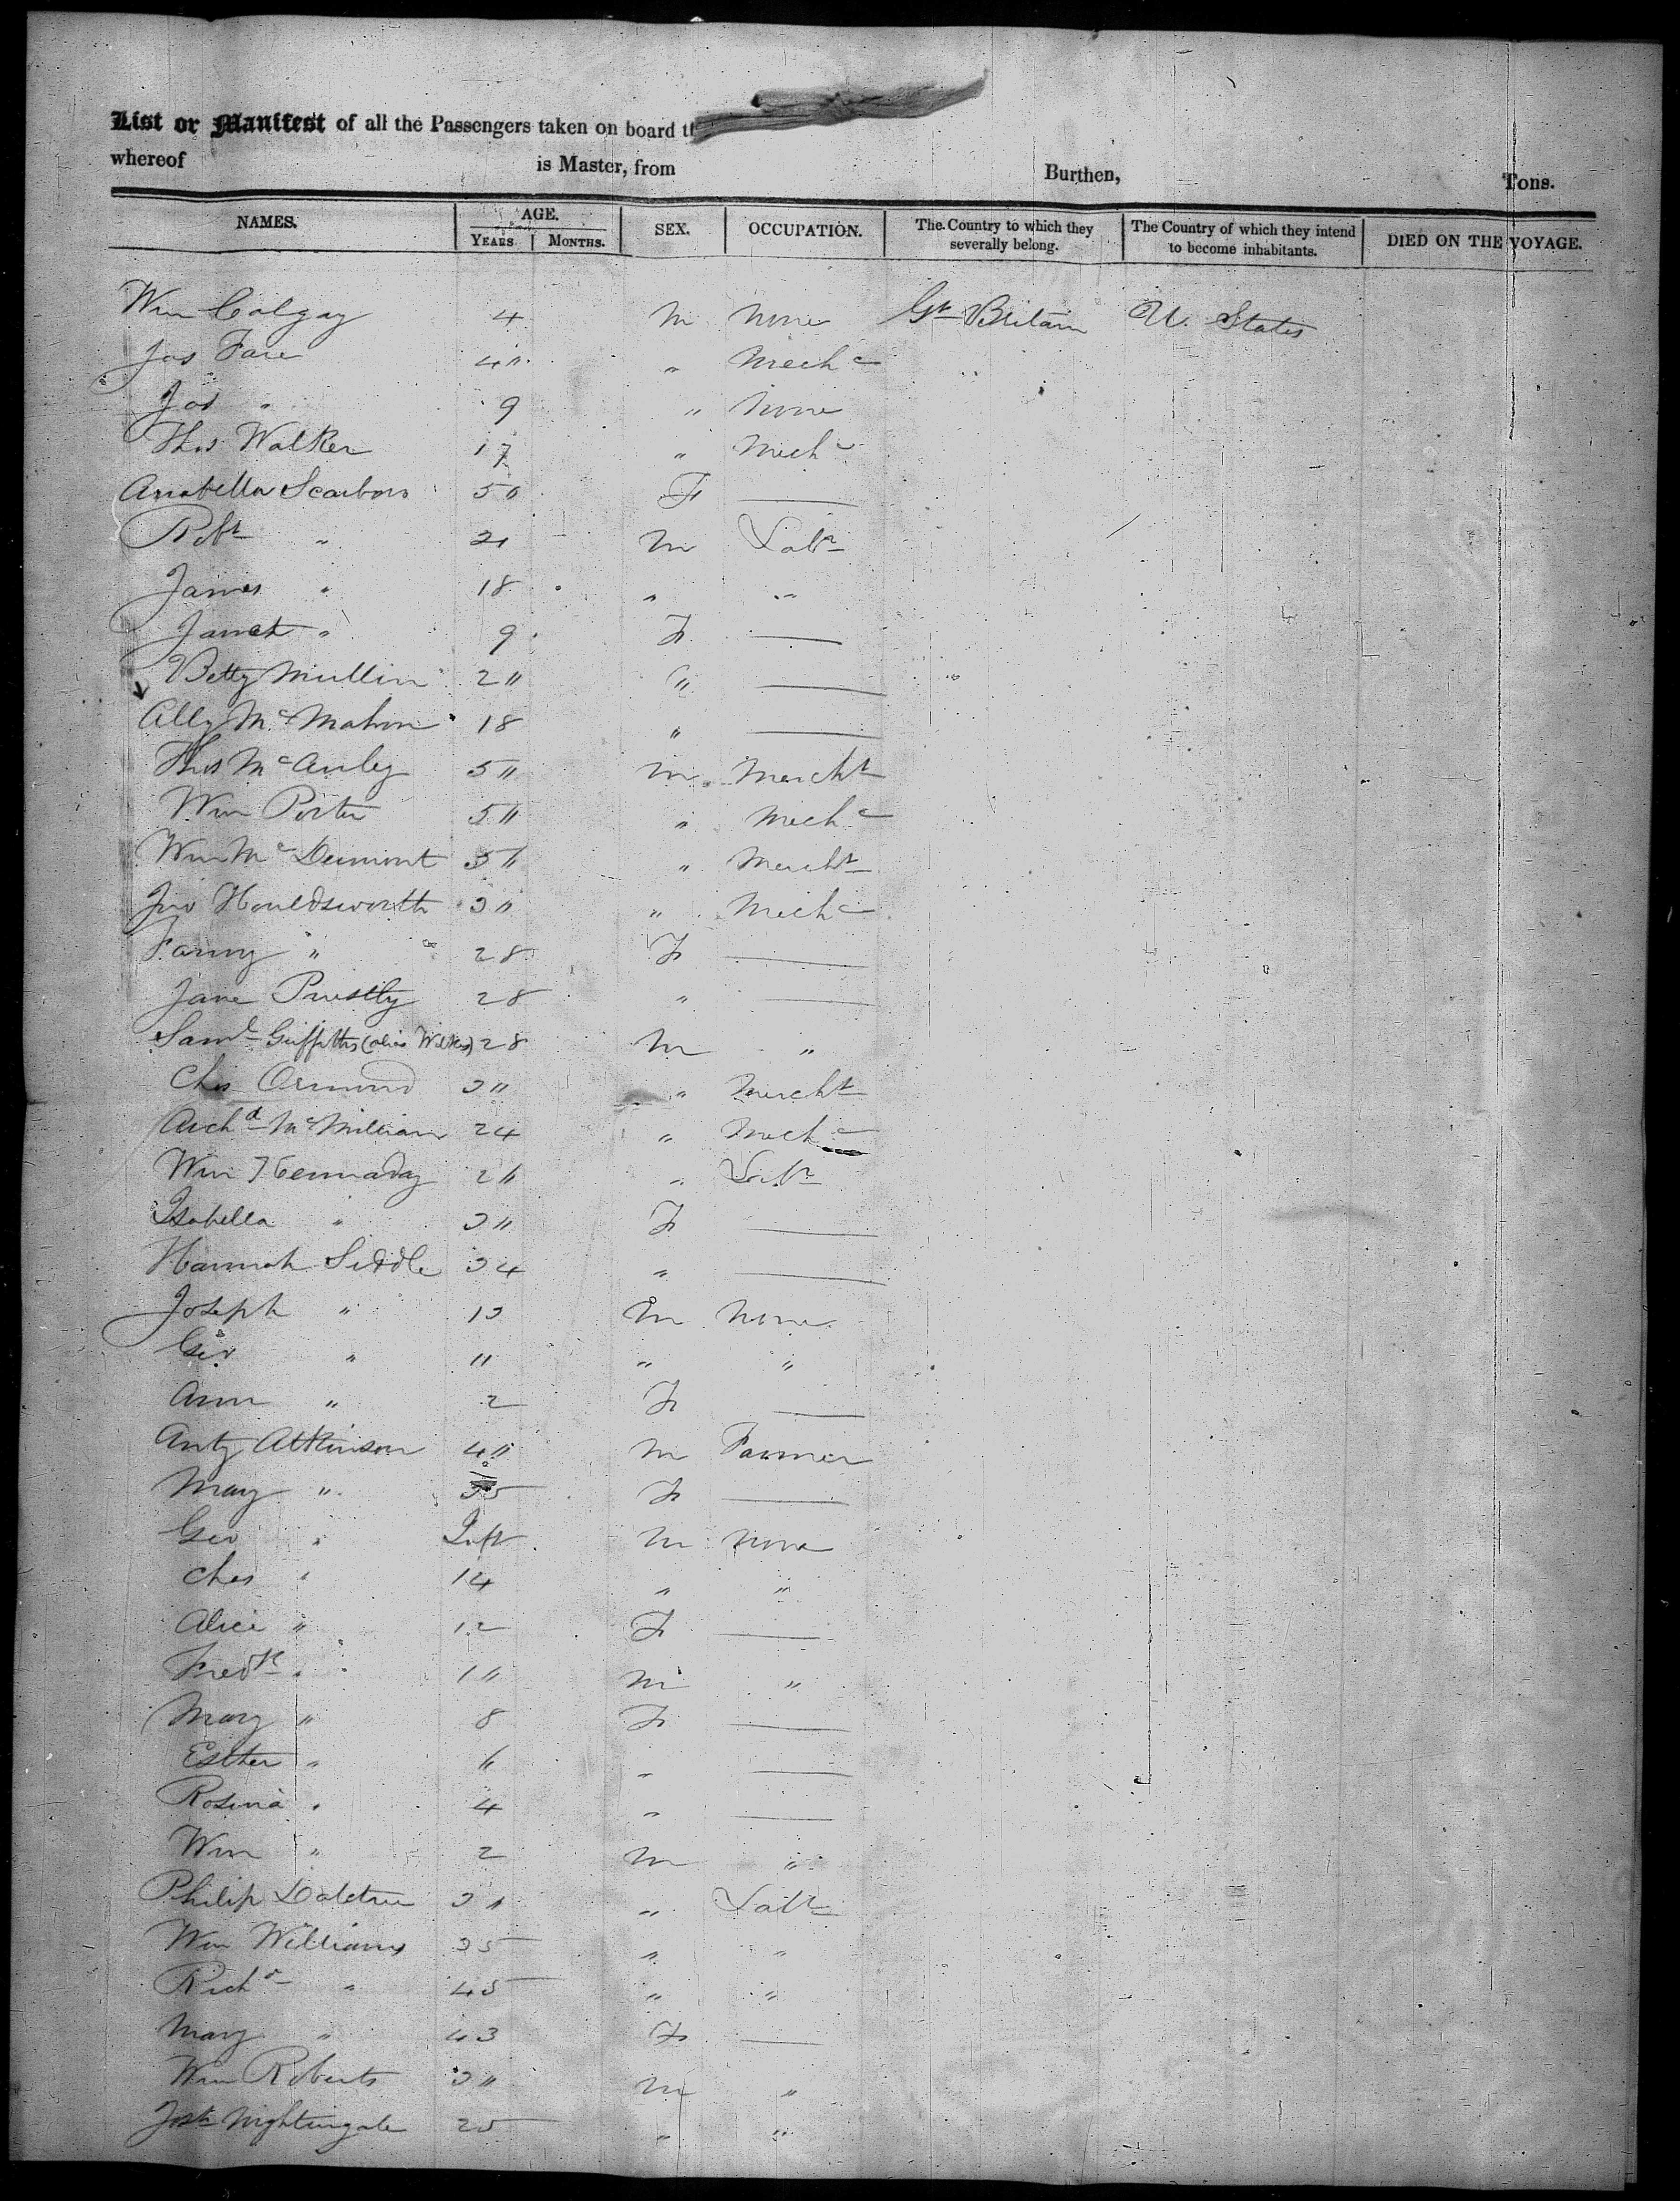 List or Manifest of all the Passengers taken on board th
whereof is Master, from Burthen, Tons.
NAMES. AGE. SEX. OCCUPATION. The Country to which they severally belong. The Country of which they intend to become inhabitants. DIED ON THE VOYAGE.
YEARS MONTHS.
Wm Colgay 4 M None Gt Britain U. States
Jas Fare 4" " Mechc
Jas " 9 " None
Thos Walker 17 " Mechc
Anabella Scarboro 50 F —
Robt " 21 M Labr
James " 18 " "
Janet " 9 F —
Betty Mullin 2" " —
Ally McMahon 18 " —
Thos McAuley 5" M Mercht
Wm Porter 5" " Mechc
Wm McDermont 5" " Mercht
Jno Houldsworth 3" " Mechc
Fanny " 28 F —
Jane Priestly 28 " —
Saml Griffiths (alias Wilkes) 28 M "
Chs Ormond 3" " Mercht
Archd McMillian 24 " Mechc
Wm Kennaday 2" " Labr
Isabella " 3" F —
Hannah Siddle 34 " —
Joseph " 13 M None
Geo " 11 " "
Ann " 2 F —
Anty Atkinson 4" M Farmer
Mary " 35 F —
Geo " Inft M None
Chas " 14 " "
Alice " 12 F —
Fredk " 1" M "
Mary " 8 F —
Esther " 6 " —
Rosina " 4 " —
Wm " 2 M "
Philip 3" " Labr
Wm Williams 35 " "
Richd " 45 " "
Mary " 43 F —
Wm Roberts 3" M "
Josh Nightingale 25 " "